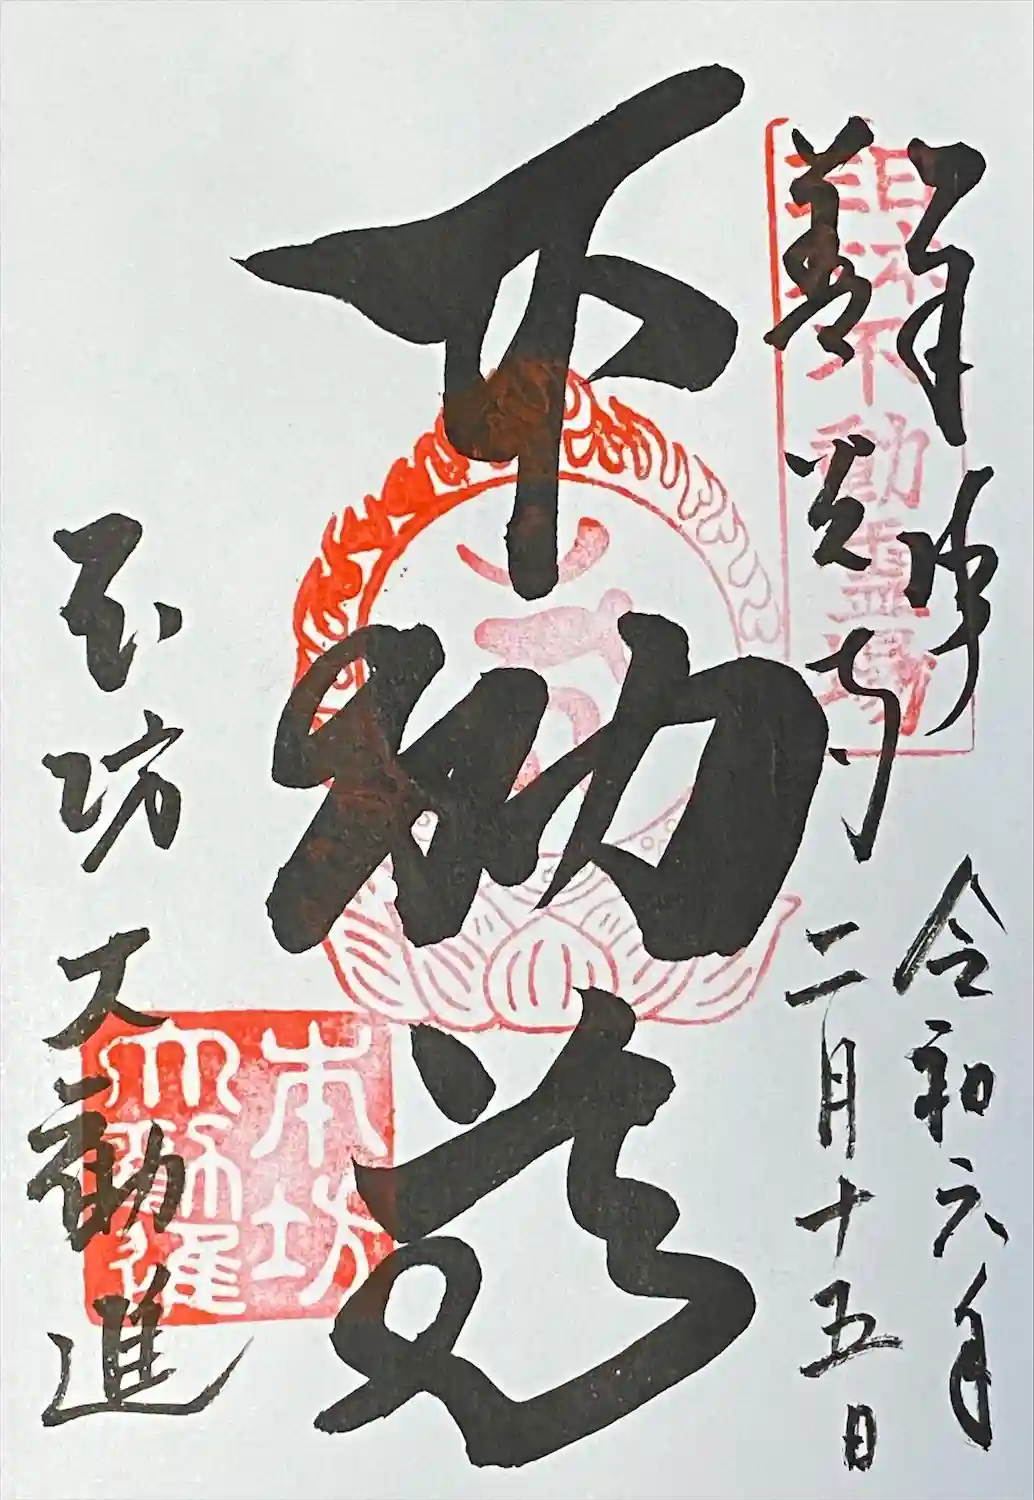 善光寺
令和六年
二月十五日
不動霊場
不動尊
本坊大勧進
本坊
大勧進